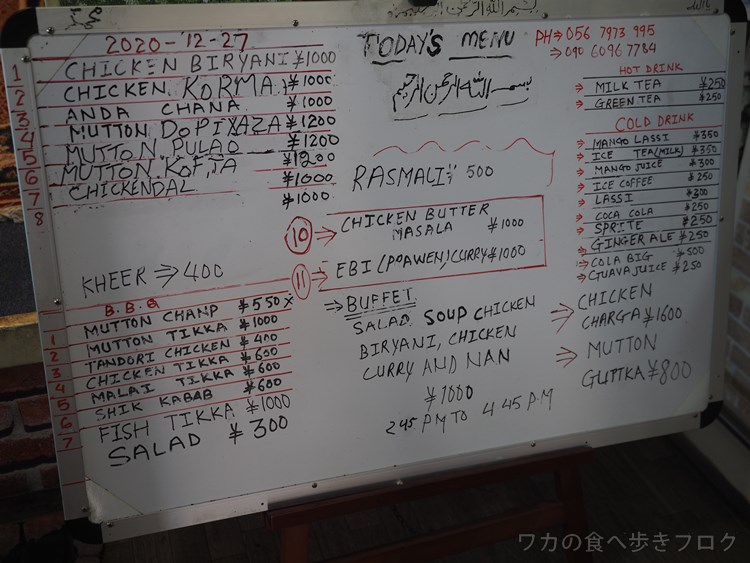 بسم الله الرحمن الرحيم
2020-12-27
1 CHICKEN BIRYANI ¥1000
2 CHICKEN KORMA ¥1000
3 ANDA CHANA ¥1000
4 MUTTON DOPIYAZA ¥1200
5 MUTTON PULAO ¥1200
6 MUTTON KOFTA
7 CHICKENDAL ¥1000
8 ¥1000
KHEER ⇒ 400
B.B.Q
MUTTON CHANP ¥550X
1 MUTTON TIKKA ¥1000
2 TANDORI CHICKEN ¥400
3 CHICKEN TIKKA ¥600
4 MALAI TIKKA ¥600
5 SHIK KABAB ¥600
6 FISH TIKKA ¥1000
7 SALAD ¥300
TODAY'S MENU
بسم الله الرحمن الرحيم
RASMALI 500
10 ⇒ CHICKEN BUTTER
MASALA ¥1000
11 ⇒ EBI (POAWEN) CURRY ¥1000
⇒ BUFFET
SALAD SOUP CHICKEN
BIRYANI, CHICKEN
CURRY AND NAN
¥1000
245 PM TO 445 PM
PH⇒ 056 7973 995
⇒ 090 6096 7784
HOT DRINK
⇒ MILK TEA ¥250
⇒ GREEN TEA ¥250
COLD DRINK
⇒ MANGO LASSI ¥350
⇒ ICE TEA (MILK) ¥350
⇒ MANGO JUICE ¥300
⇒ ICE COFFEE ¥250
⇒ LASSI ¥300
⇒ COCA COLA ¥250
⇒ SPRITE ¥250
⇒ GINGER ALE ¥250
⇒ COLA BIG ¥500
⇒ GUAVA JUICE ¥250
⇒ CHICKEN
CHARGA ¥1600
⇒ MUTTON
GUTTKA ¥800
ワカの食べ歩きブログ